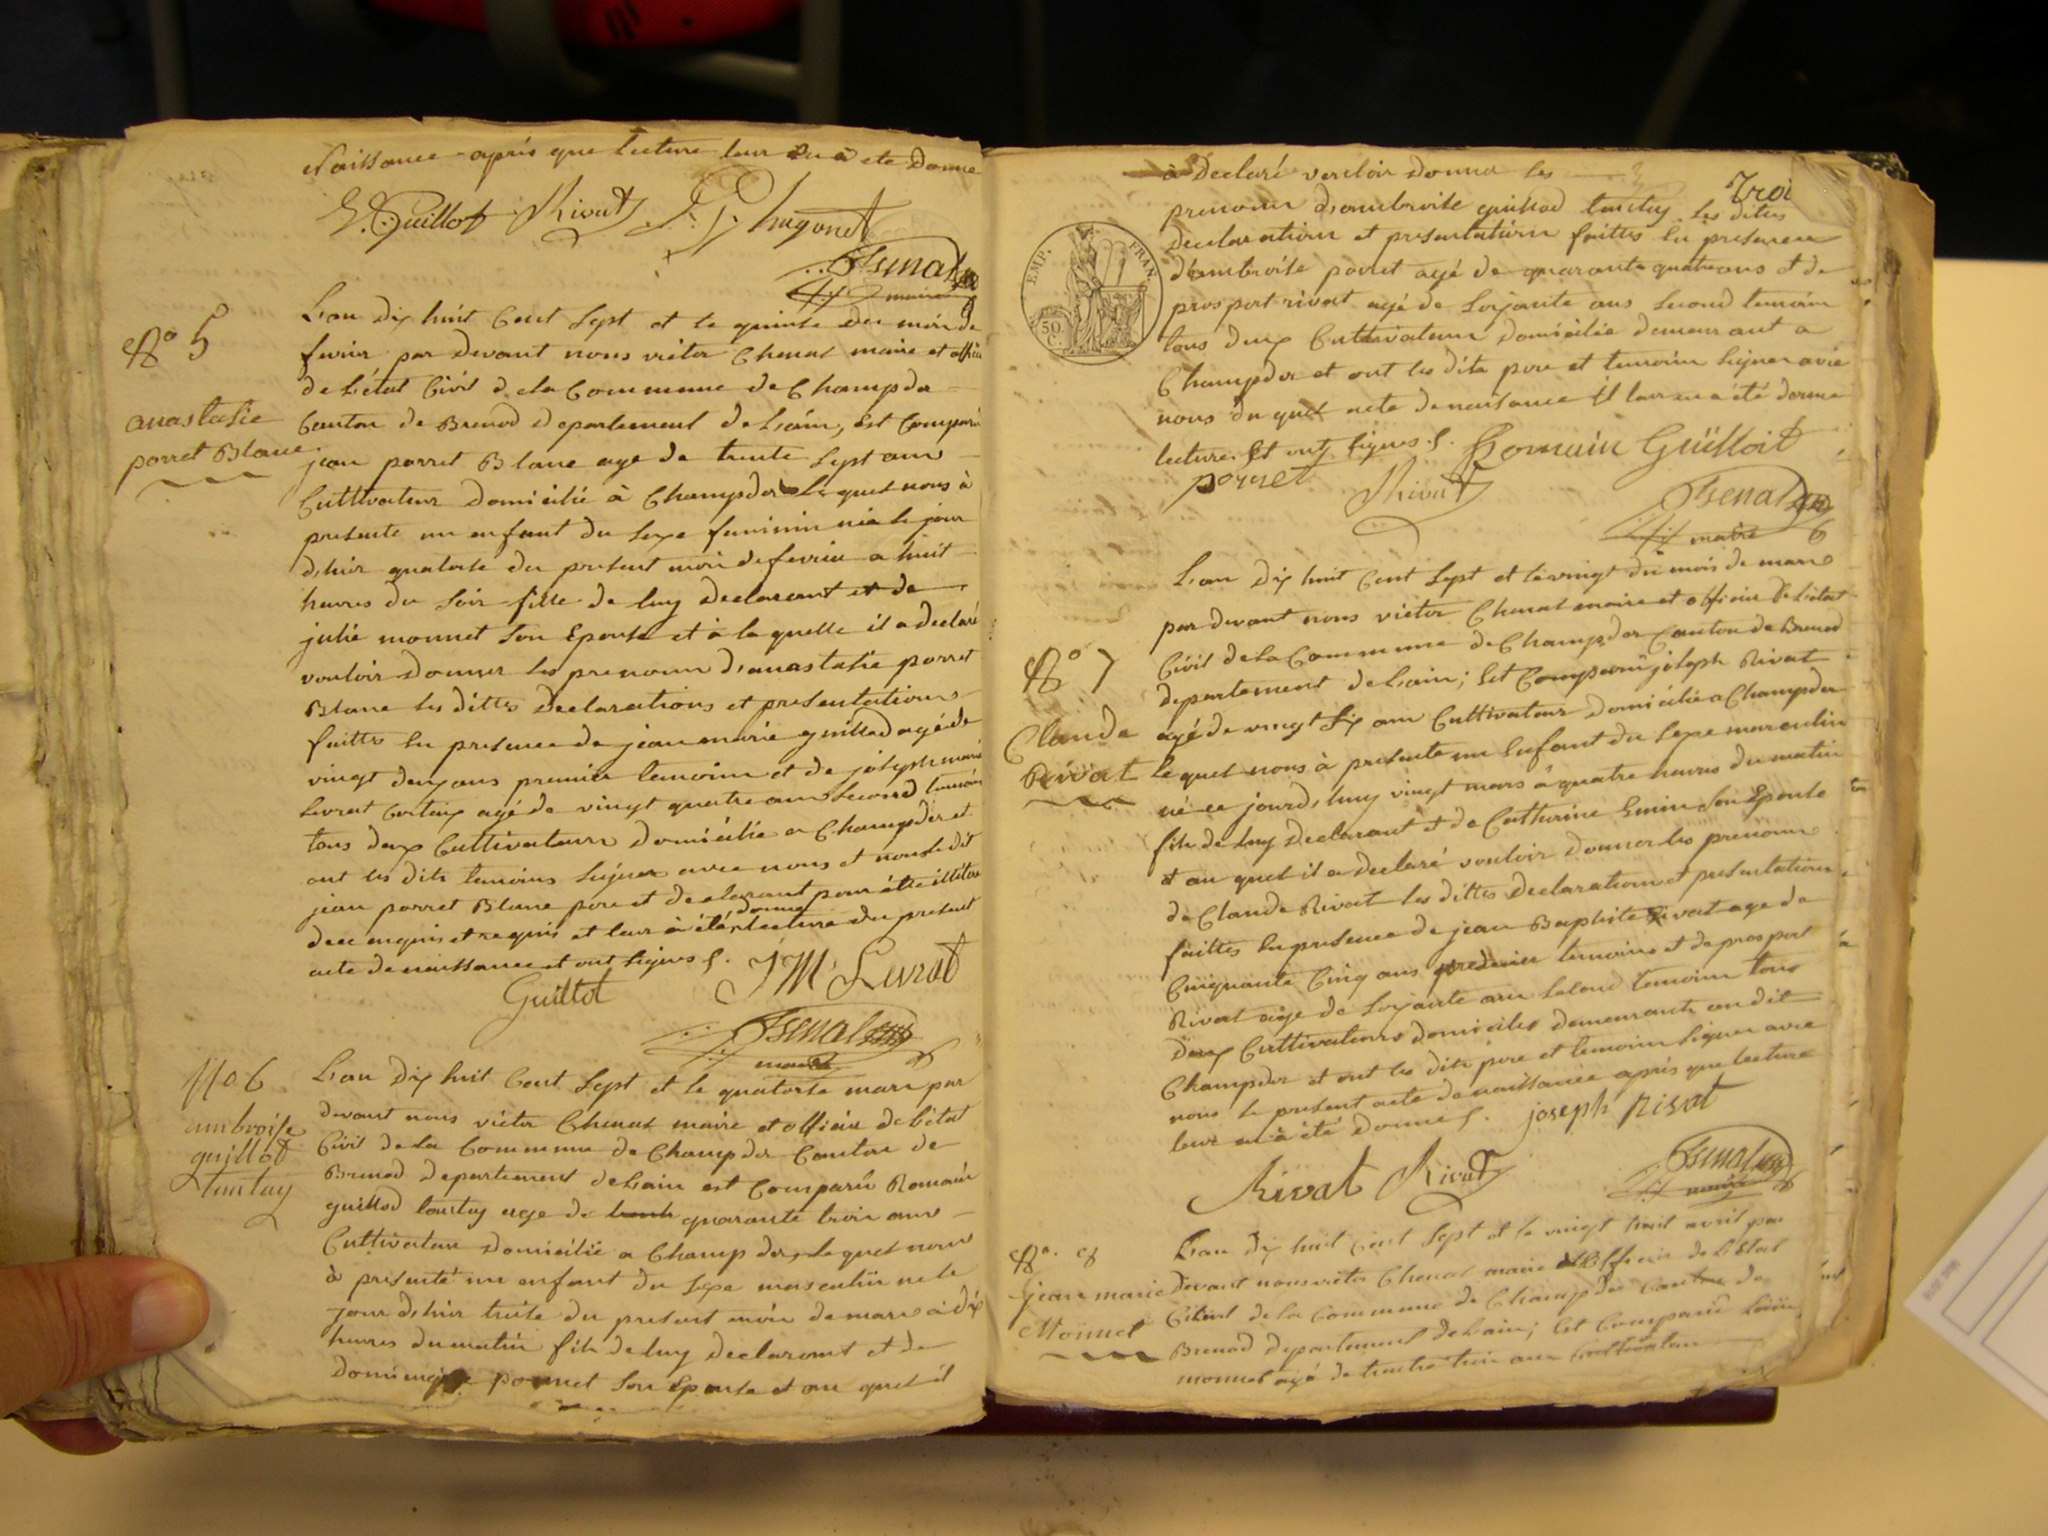 Naissance après que lecture leur en à ete Donne
J. Guillot Rivat J. J. hugonet
Chenal
maire
No 5
anastasie
porret Blanc
L'an Dix huit Cent Sept et le quinze du mois de
fevrier par devant nous victor Chenal maire et officier
de L'état Civil de la Commune de Champdor
Canton de Brenod Departement de L'ain, est Comparu
jean porret Blanc age de trente Sept ans
Cultivateur Domicilié à Champdor Lequel nous à
presenté un enfant du Sexe feminin née le jour
d'hier quatorze du present mois de fevrier a huit
heures du Soir fille de luy Declarant et de
julie monnet Son Epouse et à la quelle il a declaré
vouloir Donner les prenoms d'anastasie porret
Blanc les dittes Declarations et presentations
faittes En presence de jean marie guillod agé de
vingt deux ans premier temoin et de joseph marie
Livrat agé de vingt quatre ans Second temoin
tous deux Cultivateurs Domicilie a Champdor et
ont les dits temoins Signer avec nous et non le dit
jean porret Blanc pere et declarant pour être illétere
de ce enquis et requis et leur à été donne lecture du present
acte de naissance et ont Signes S.
J M Levrat
Guillot
Chenal
maire
No 6
ambroise
guillot
tontuy
L'an Dix huit Cent Sept et le quatorze mars par
devant nous victor Chenal maire et officier de L'état
Civil de la Commune de Champdor Canton de
Brenod Departement de L'ain est Comparu Romain
guillod tontuy age de quarante trois ans
Cultivateur Domicilié a Champdor, lequel nous
à presenté un enfant du Sexe masculin ne le
jour d'hier treize du present mois de mars à dix
heures du matin fils de luy Declarant et de
Dominique porret Son Epouse et au quel il
Troi
à Declaré vouloir Donner les
prenoms d'ambroise guillod tontuy Les dittes
Declarations et presentations faittes En presence
d'ambroise porret agé de quarante quatre ans et de
prospert rivat agé de Soixante ans Second temoin
tous deux Cultivateurs Domicilie demeurant a
Champdor et ont les dits pere et temoins Signer avec
nous du quel acte de naissance il leur en a été donne
lecture Et ont Signes S. Romain Guilloit
porret Rivat
Chenal
maire
EMP. FRAN.
50
C.
No 7
Claude
Rivat
L'an Dix huit Cent Sept et le vingt du mois de mars
par devant nous victor Chenal maire et officier de L'état
Civil de la Commune de Champdor Canton de Brenod
departement de L'ain; Est Comparu joseph Rivat
agé de vingt Six ans Cultivateur Domicilié a Champdor
le quel nous à presenté un Enfant du Sexe masculin
né ce jourd'huy vingt mars à quatre heures du matin
fils de luy Declarant et de Catherine Emin Son Epouse
et au quel il a declaré vouloir donner les prenoms
de Claude Rivat les dittes Declaration et presentations
faittes En presence de jean Baptiste Rivat age de
Cinquante Cinq ans premier temoin et de prospert
Rivat age de Soixante ans Second temoin tous
deux Cultivateurs domiciles demeurants au dit
Champdor et ont les dits pere et temoins Signer avec
nous le present acte de naissance après que lecture
leur en à été donné S. joseph Rivat
Rivat Rivat
Chenal
maire
No. 8
jean marie
Monnet
L'an Dix huit Cent Sept et le vingt huit avril par
Devant nous victor Chenal maire et Officier de L'Etat
Civil de la Commune de Champdor Canton de
Brenod Departement de L'ain; Est Comparu
monnet agé de trente trois ans Cultivateur